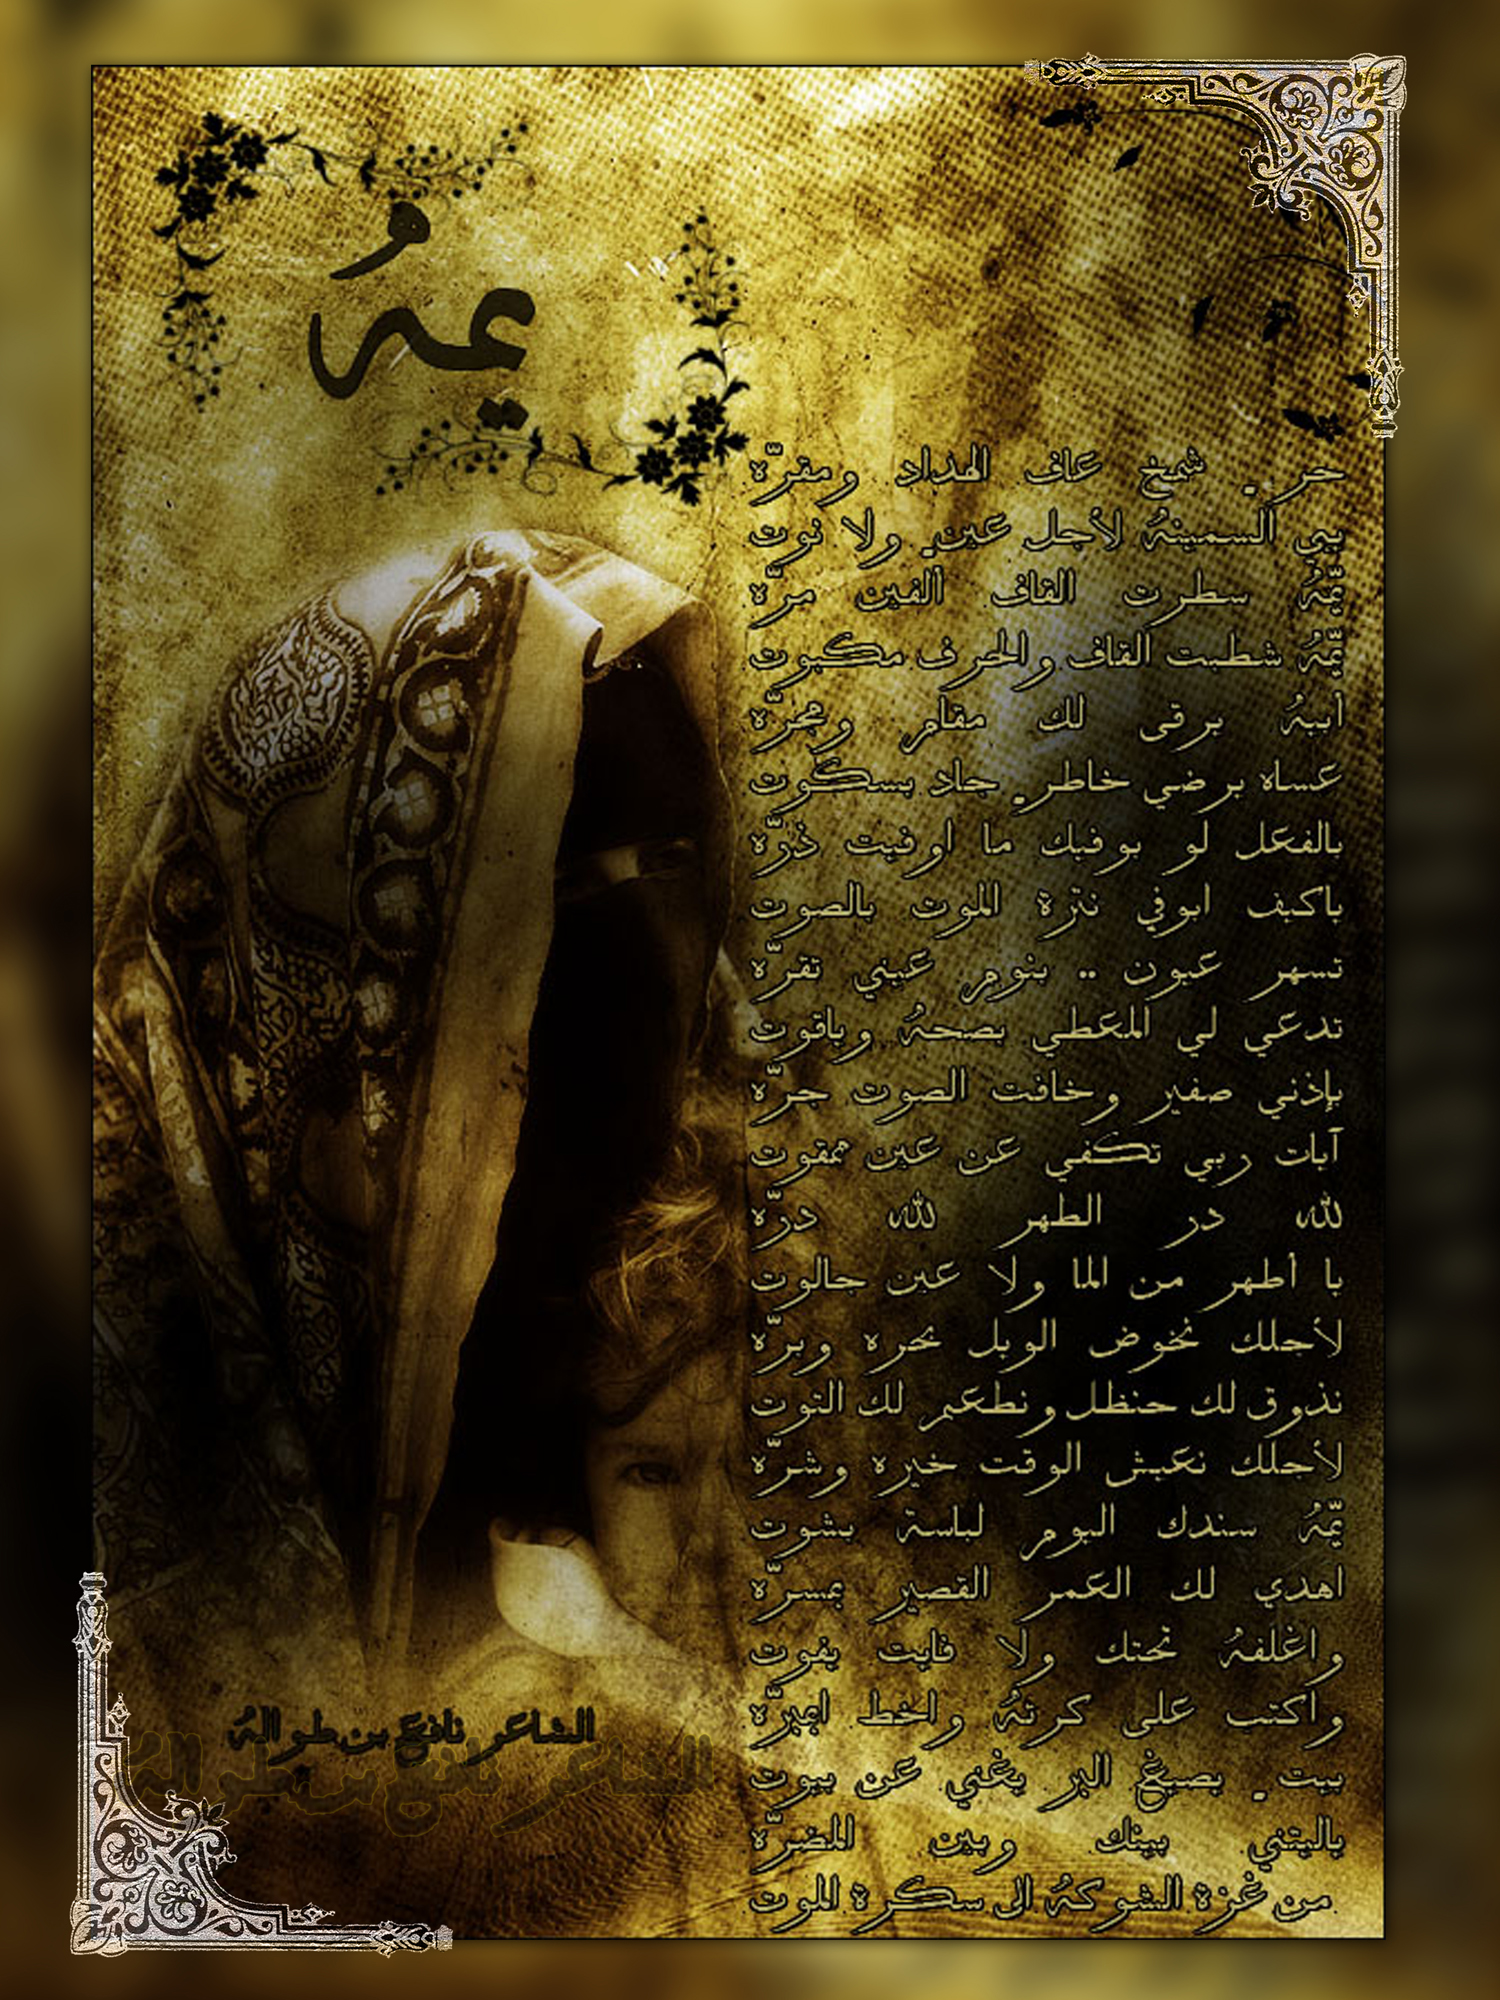 يمهُ
حرٍ شمخ عاف الهداد ومقرّه
يبي السمينهُ لأجل عينٍ ولا نوت
يّمّهُ سطرت القاف ألفين مرّه
يّمّهُ شطبت القاف والحرف مكبوت
أبيهُ يرقى لك مقام ومجرّه
عساه يرضي خاطرٍ جاد بسكوت
بالفعل لو بوفيك ما اوفيت ذرّه
ياكيف ابوفي نترة الموت بالصوت
تسهر عيون .. بنوم عيني تقرّه
تدعي لي المعطي بصحهُ وياقوت
بإذني صفير وخافت الصوت جرّه
آيات ربي تكفي عن عين ممقوت
لله در الطهر لله درّه
يا أطهر من الما ولا عين جالوت
لأجلك نخوض الويل بحره وبرّه
نذوق لك حنظل ونطعم لك التوت
لأجلك نعيش الوقت خيره وشرّه
يّمّهُ سندك اليوم لباسة بشوت
اهدي لك العمر القصير بمسرّه
واغلفهُ تحتك ولا فايت يفوت
واكتب على كرتهُ واخط
بيتٍ بصيغ البر يغني عن بيوت
ياليتني بينك وبين المضرّه
من غزة الشوكهُ الى سكرة الموت
الشاعر نافع بن طوالهُ
الشاعر نافع بن طوالهُ